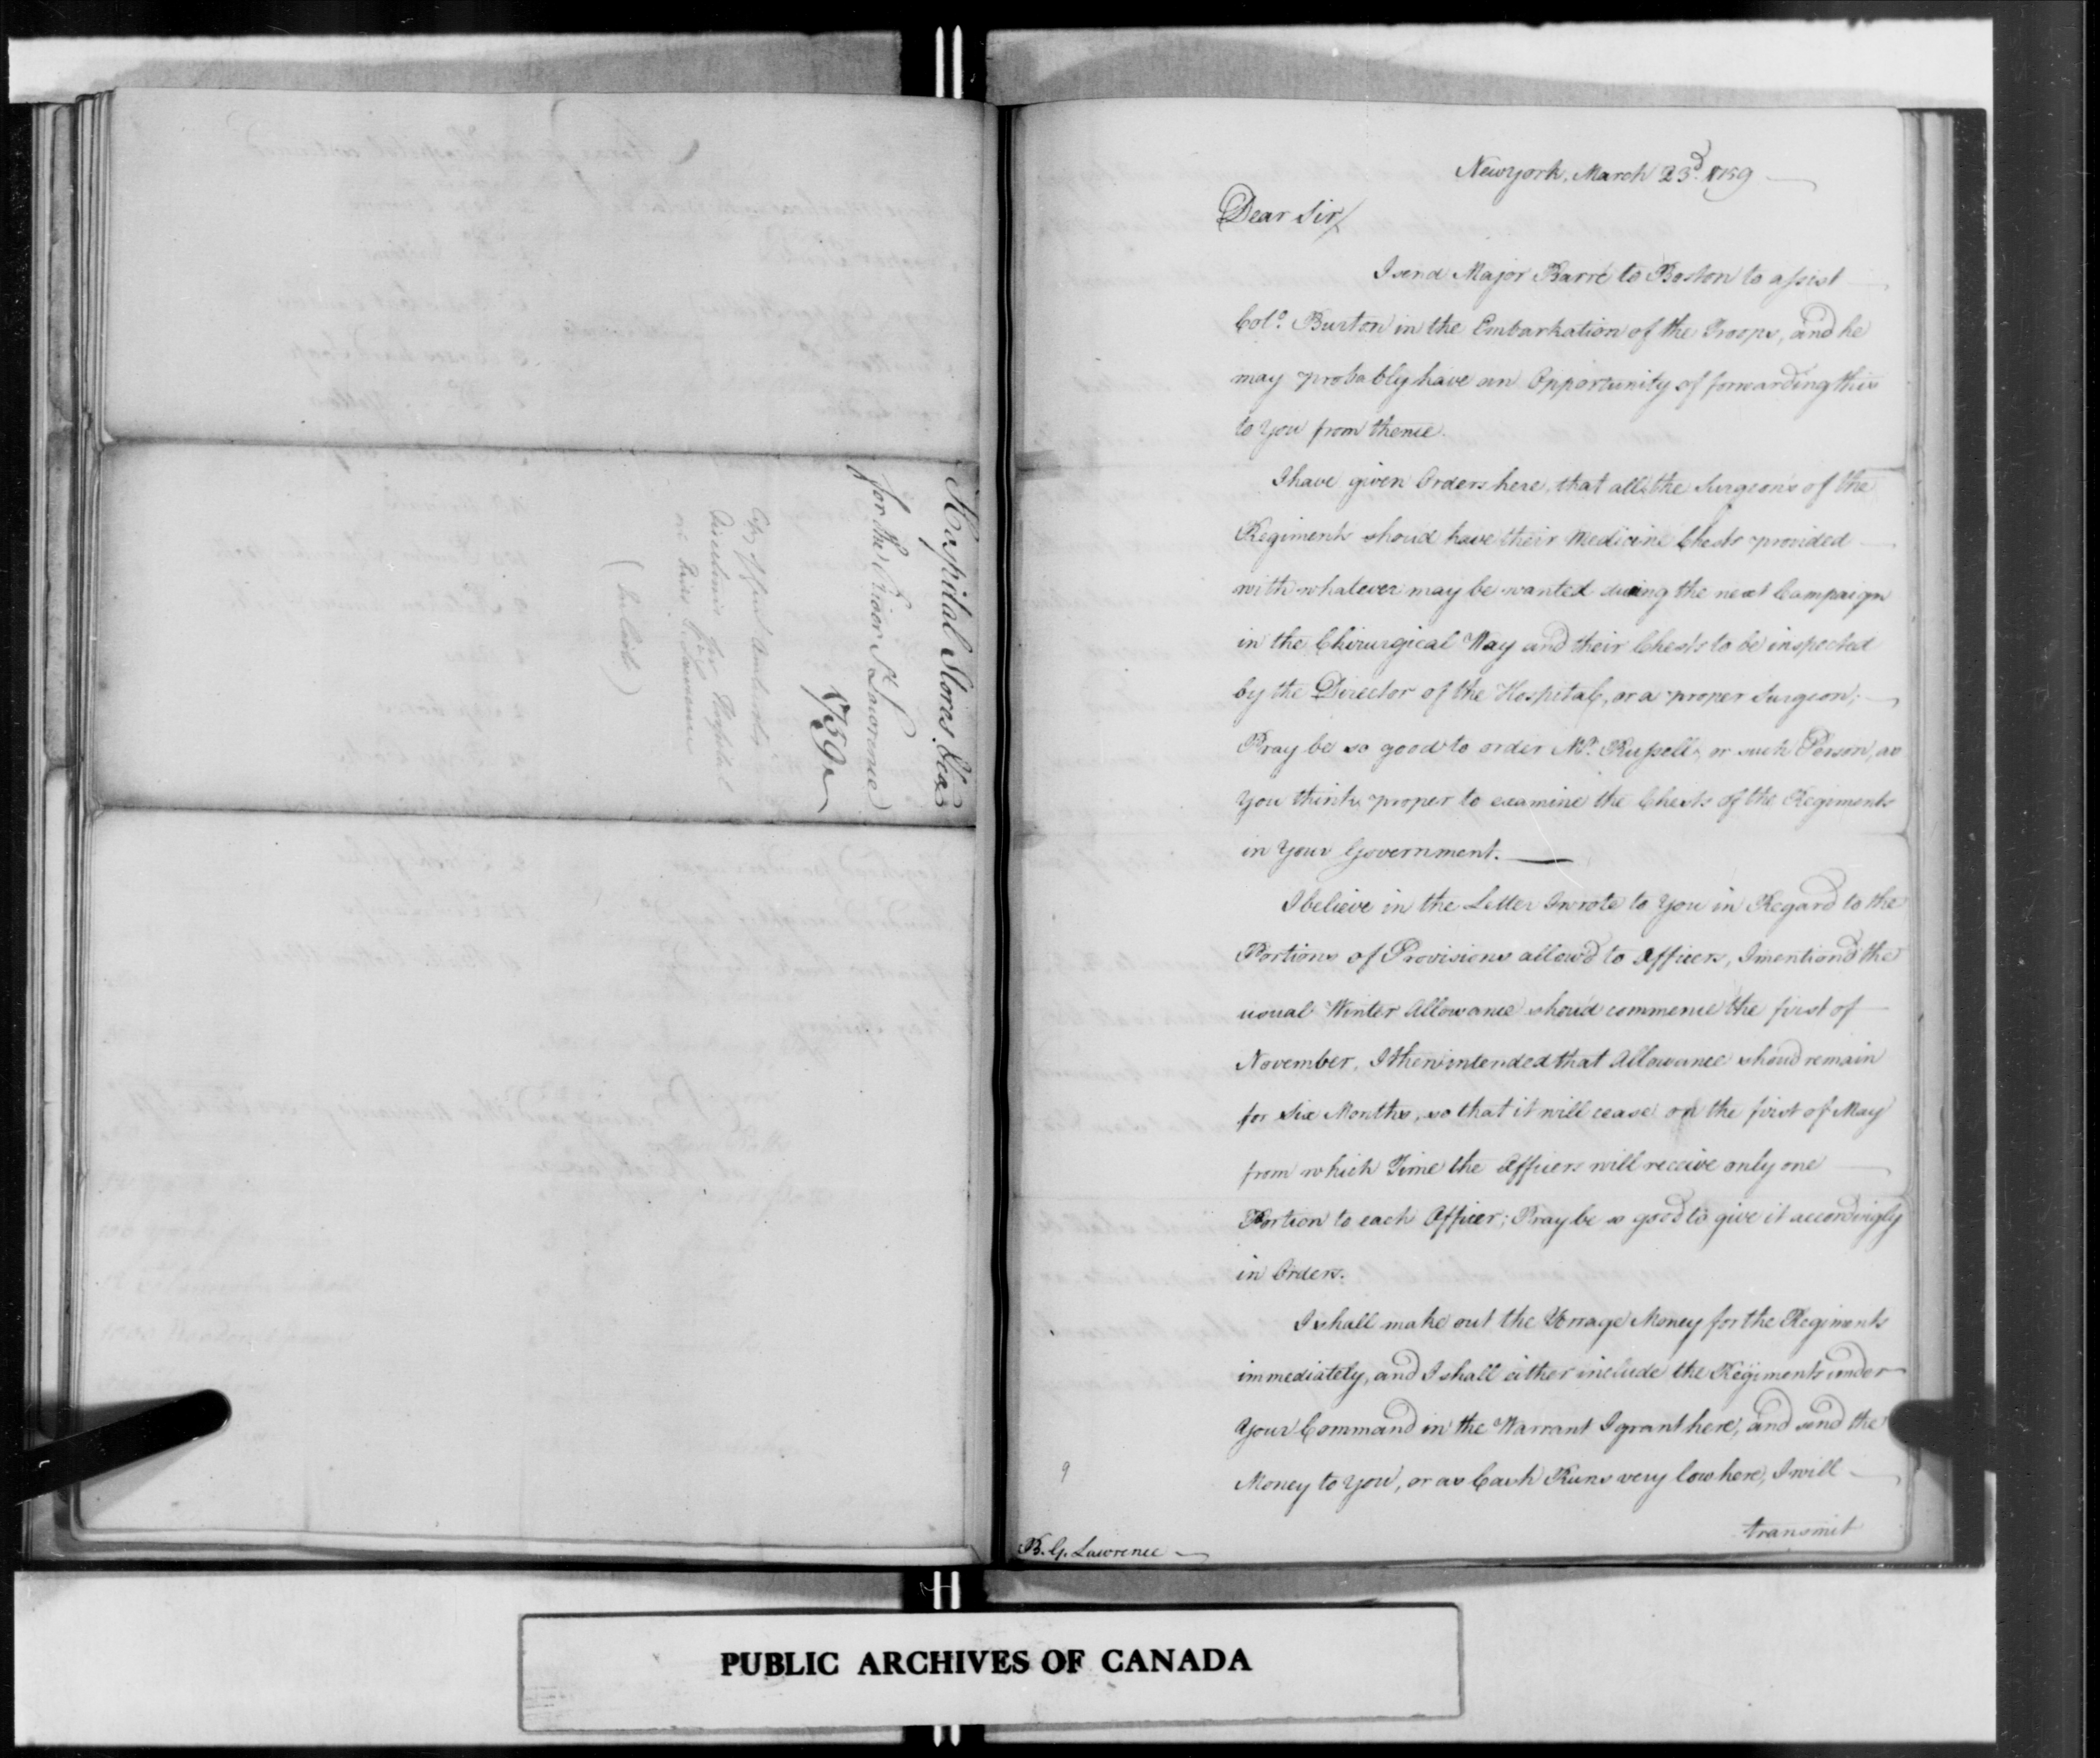 Hospital Stores &ca
for the River St. Lawrence
1759
Copy of
for Hospital
on River St. Lawrence
Newyork, March 23d. 1759
Dear Sir/
I send Major Barré to Boston to assist
Colo. Burton in the Embarkation of the Troops, and he
may probably have an Opportunity of forwarding this
to You from thence.
I have given Orders here, that all the Surgeons of the
Regiments shoud have their Medicine Chests provided
with whatever may be wanted during the next Campaign
in the Chirurgical Way and their Chests to be inspected
by the Director of the Hospital, or a proper Surgeon;
Pray be so good to order Mr. Russell, or such Person, as
You think proper to examine the Chests of the Regiments
in Your Government.
I believe in the Letter I wrote to You in Regard to the
Portions of Provisions allow'd to Officers, I mention'd the
usual Winter Allowance shou'd commence the first of
November, I then intended that Allowance shoud remain
for six Months, so that it will cease on the first of May
from which Time the Officers will receive only one
Portion to each Officer; Pray be so good to give it accordingly
in Orders.
I shall make out the Forrage Money for the Regiments
immediately, and I shall either include the Regiments under
Your Command in the Warrant I grant here, and send the
Money to You, or as Cash Runs very low here, I will
transmit
9
B. G. Lawrence
PUBLIC ARCHIVES OF CANADA